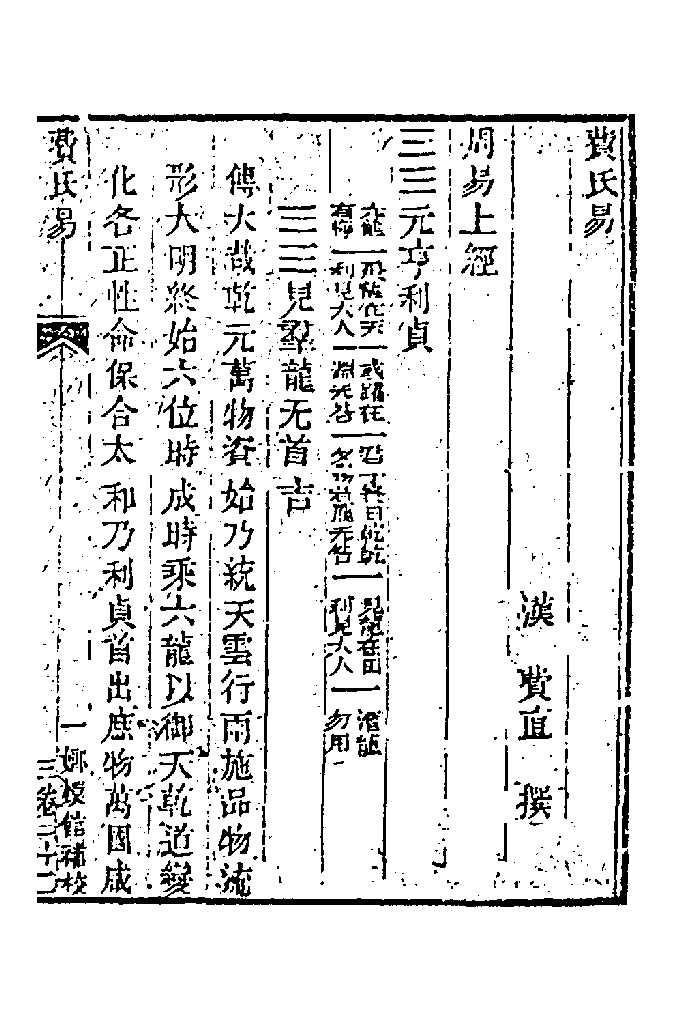 費氏易
漢 費直 撰
周易上經
☰☰元亨利貞
亢龍有悔一飛龍在天利見大人一或躍在淵无咎一君子終日乾乾夕惕若厲无咎一見龍在田利見大人一潛龍勿用
☰☰見羣龍无首吉
傳大哉乾元萬物資始乃統天雲行雨施品物流
形大明終始六位時成時乘六龍以御天乾道變
化各正性命保合太和乃利貞首出庶物萬國咸
費氏易 一 嫏嬛館補校